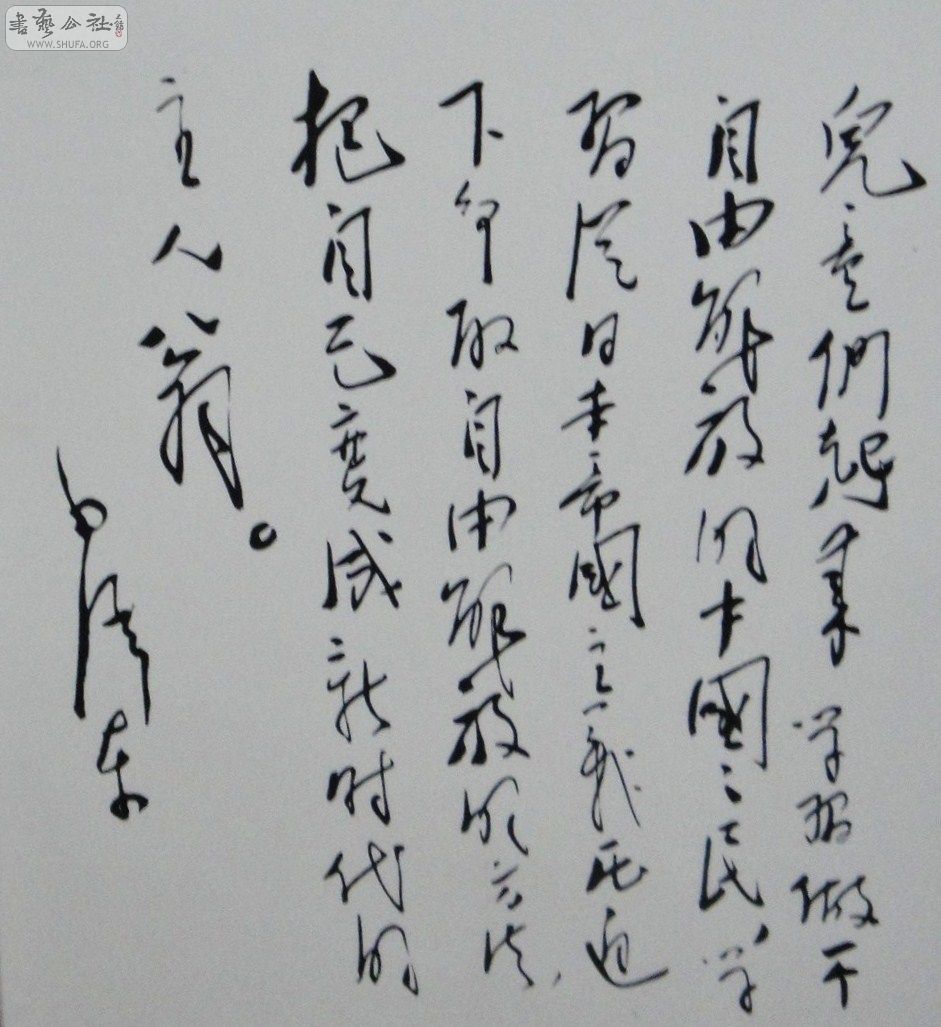 書藝公社
WWW.SHUFA.ORG
兒童們起来学習做一个
自由解放的中國々民,学
習從日本帝國主義压迫
下争取自由解放的方法,
把自己變成新时代的
主人翁。
毛泽东